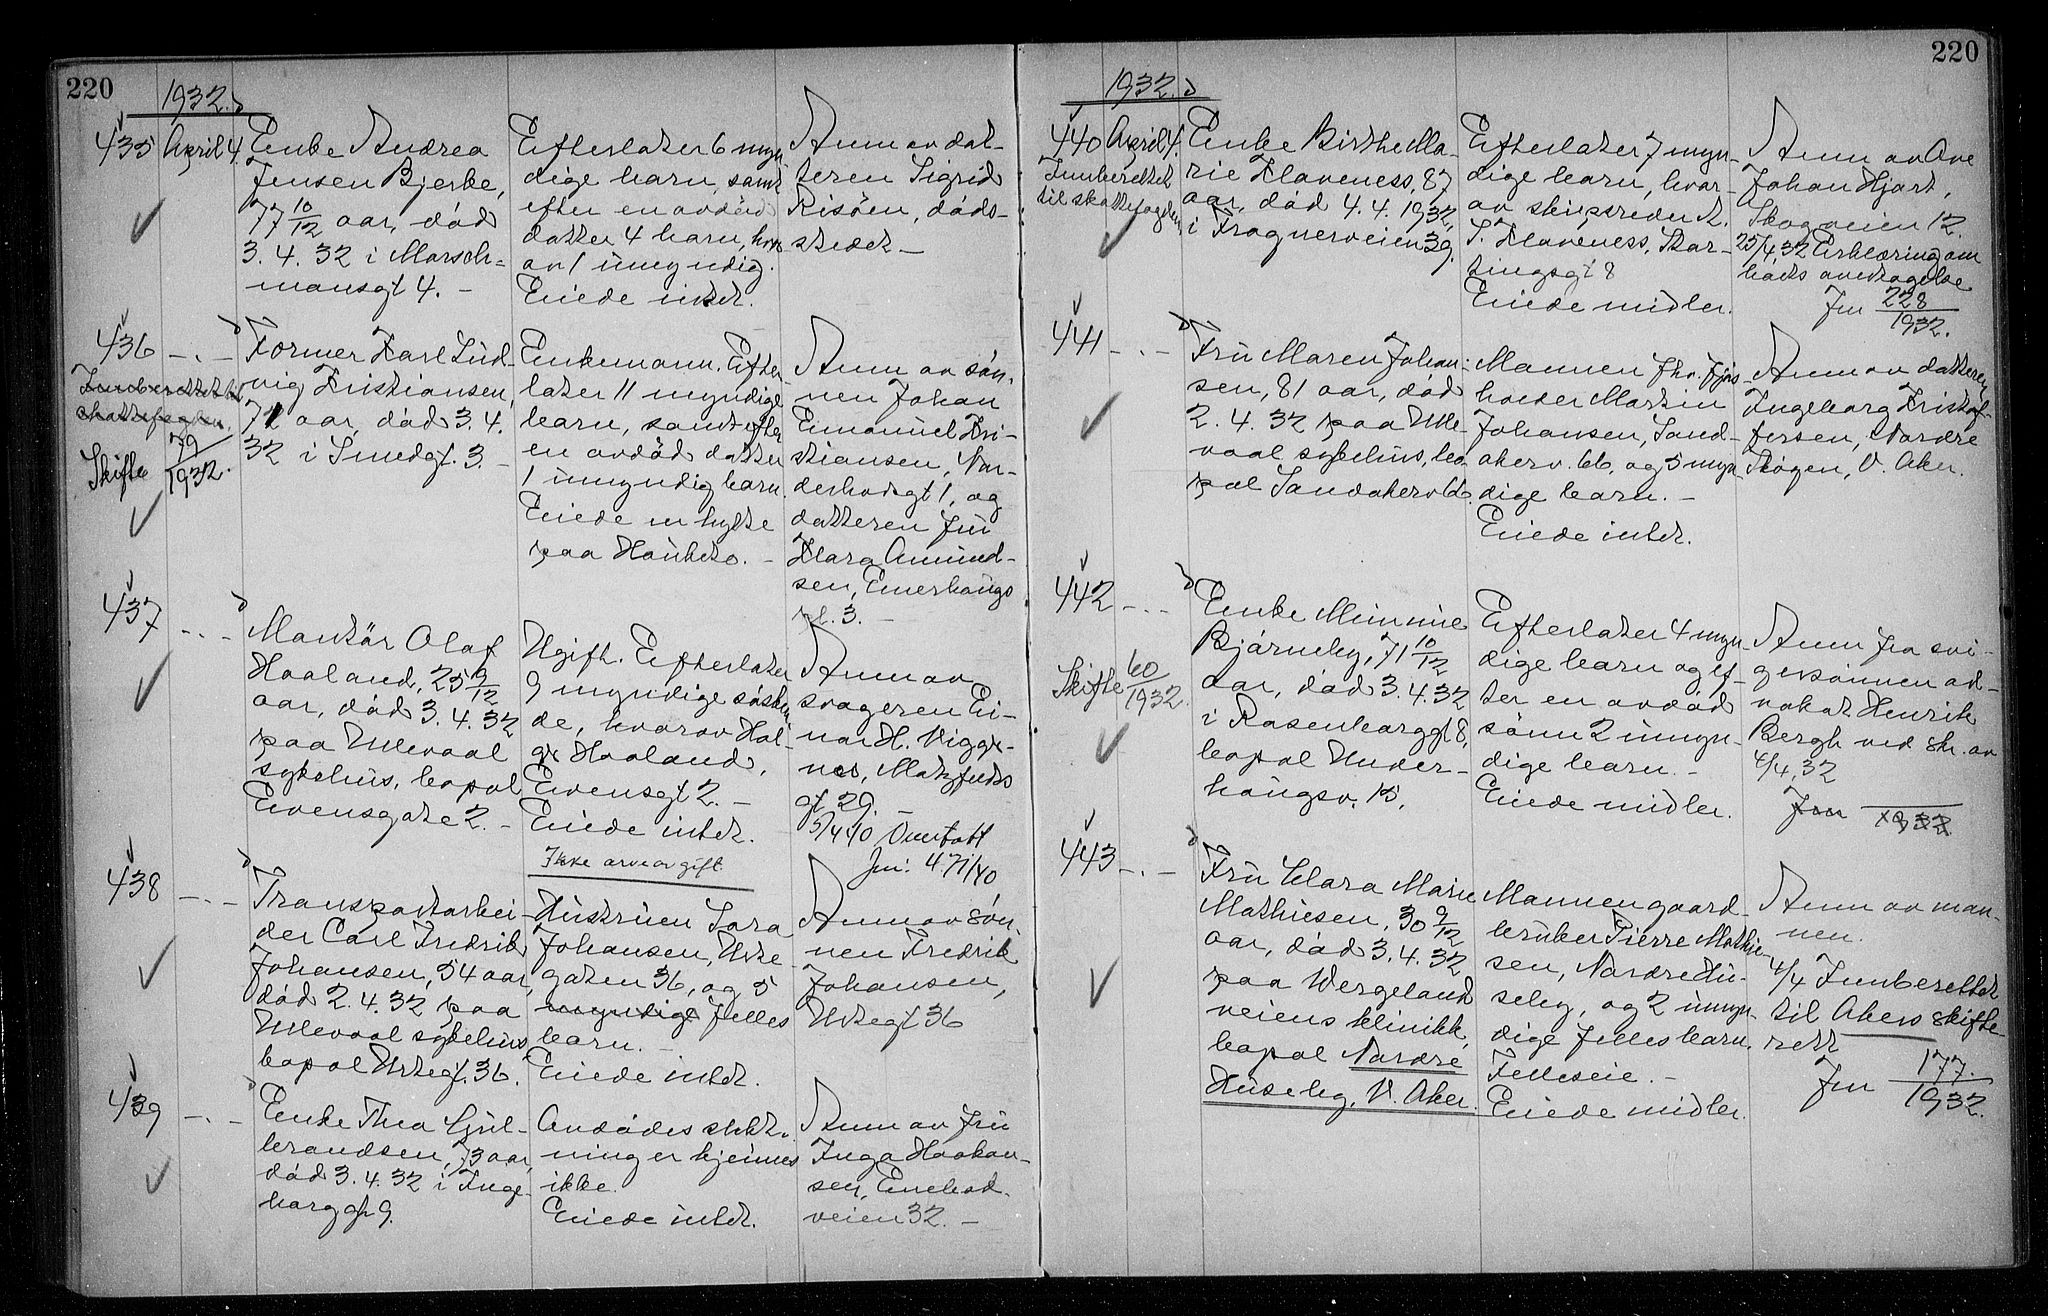 220
1932.
435 April 4.
Enke Andrea
Jensen Bjerke,
77 10/12 aar, död
3.4.32 i Marsch-
mansgt 4. -
Efterlater 6 myn-
dige barn, samt
efter en avdöd
datter 4 barn, hvor
av 1 umyndig.
Eiede intet.
Anm av dat-
teren Sigrid
Risöen, döds-
stedet -
436 - . -
Innberettet til
skattefogden.
Skifte 79/1932.
Former Karl Lud-
vig Kristiansen,
71 aar, död 3.4.
32 i Smedgt. 3. -
Enkemann. Efter-
later 11 myndige
barn, samt efter
en avdöd datter
1 umyndig barn.
Eiede en hytte
paa Hauketo. -
Anm av søn-
nen Johan
Emanuel Kri-
stiansen, Nor-
derhovsgt 1, og
datteren fru
Klara Amund-
sen, Enerhaugs
pl. 3. -
437 - . -
Montör Olaf
Haaland, 25 9/12
aar, död 3.4.32
paa Ullevaal
sykehus, bopæl
Eivensgate 2. -
Ugift. Efterlater
9 myndige sösken-
de, hvorav Hel-
ge Haaland,
Eivensgt 2. -
Eiede intet.
Ikke arveavgift
Anm av
svogeren Ei-
nar H. Vigge-
nes,
gt. 29. -
5/4 40 Overtatt
Jnr: 471/40
438 - . -
Transportarbei-
der Carl Fredrik
Johansen, 54 aar,
död 2.4.32 paa
Ullevaal sykehus,
bopæl Urtegt. 36.
Hustruen Sara
Johansen, Urte-
gaten 36, og 5
myndige felles
barn. -
Eiede intet.
Anm av søn-
nen Fredrik
Johansen,
Urtegt 36
439 - . -
Enke Thea Gul-
brandsen, 73 aar,
död 3.4.32 i Inge-
borggt 9.
Avdödes slekt-
ning er kjennes
ikke.
Eiede intet.
Anm av fru
Inga Haakon-
sen, Enebak-
veien 32. -
220
1932.
440 April 4.
Innberettet
til skattefogden
Enke Birthe Ma-
rie Klaveness, 87
aar, död 4.4.1932,
i Frognerveien 39.
Efterlater 7 myn-
dige barn, hvor-
av skipsreder A.
F. Klaveness, Stor-
tingsgt 8
Eiede midler.
Anm av Ove
Johan Hjort,
Skogveien 12.
25/4 32 Erklæring om
boets overtagelse
Jnr 228/1932.
441 - . -
Fru Maren Johan-
sen, 81 aar, död
2.4.32 paa Ulle-
vaal sykehus, bo-
pæl
Mannen fhv. fyrs-
Martin
Johansen, Sand-
akerv. 66, og 5 myn-
dige barn. -
Eiede intet.
Anm av datteren
Ingeborg Kristof-
fersen, Nordre
Skögen, V. Aker.
442 - . -
Skifte 60/1932.
Enke Mimmie
Bjørneby, 71 10/12
aar, död 3.4.32
i Rosenborggt 8,
bopæl Under-
haugsv. 15.
Efterlater 4 myn-
dige barn og ef-
ter en avdöd
sönn 2 umyn-
dige barn. -
Eiede midler.
Anm fra svi-
gersönnen ad-
vokat Henrik
Bergh ved skr. av
4/4.32
Jnr /1932
443 - . -
Fru Clara Marie
Mathiesen, 30 9/12
aar, död 3.4.32
paa Wergeland
veiens klinikk,
bopæl Nordre
Huseby, V. Aker.
Mannen gaard-
bruker Pierre Mathie-
sen, Nordre Hu-
seby, og 2 umyn-
dige felles barn.
Felleseie. -
Eiede midler.
Anm av man-
nen.
4/4 Innberettet
til Akers skifte-
rett
Jnr 177./1932.